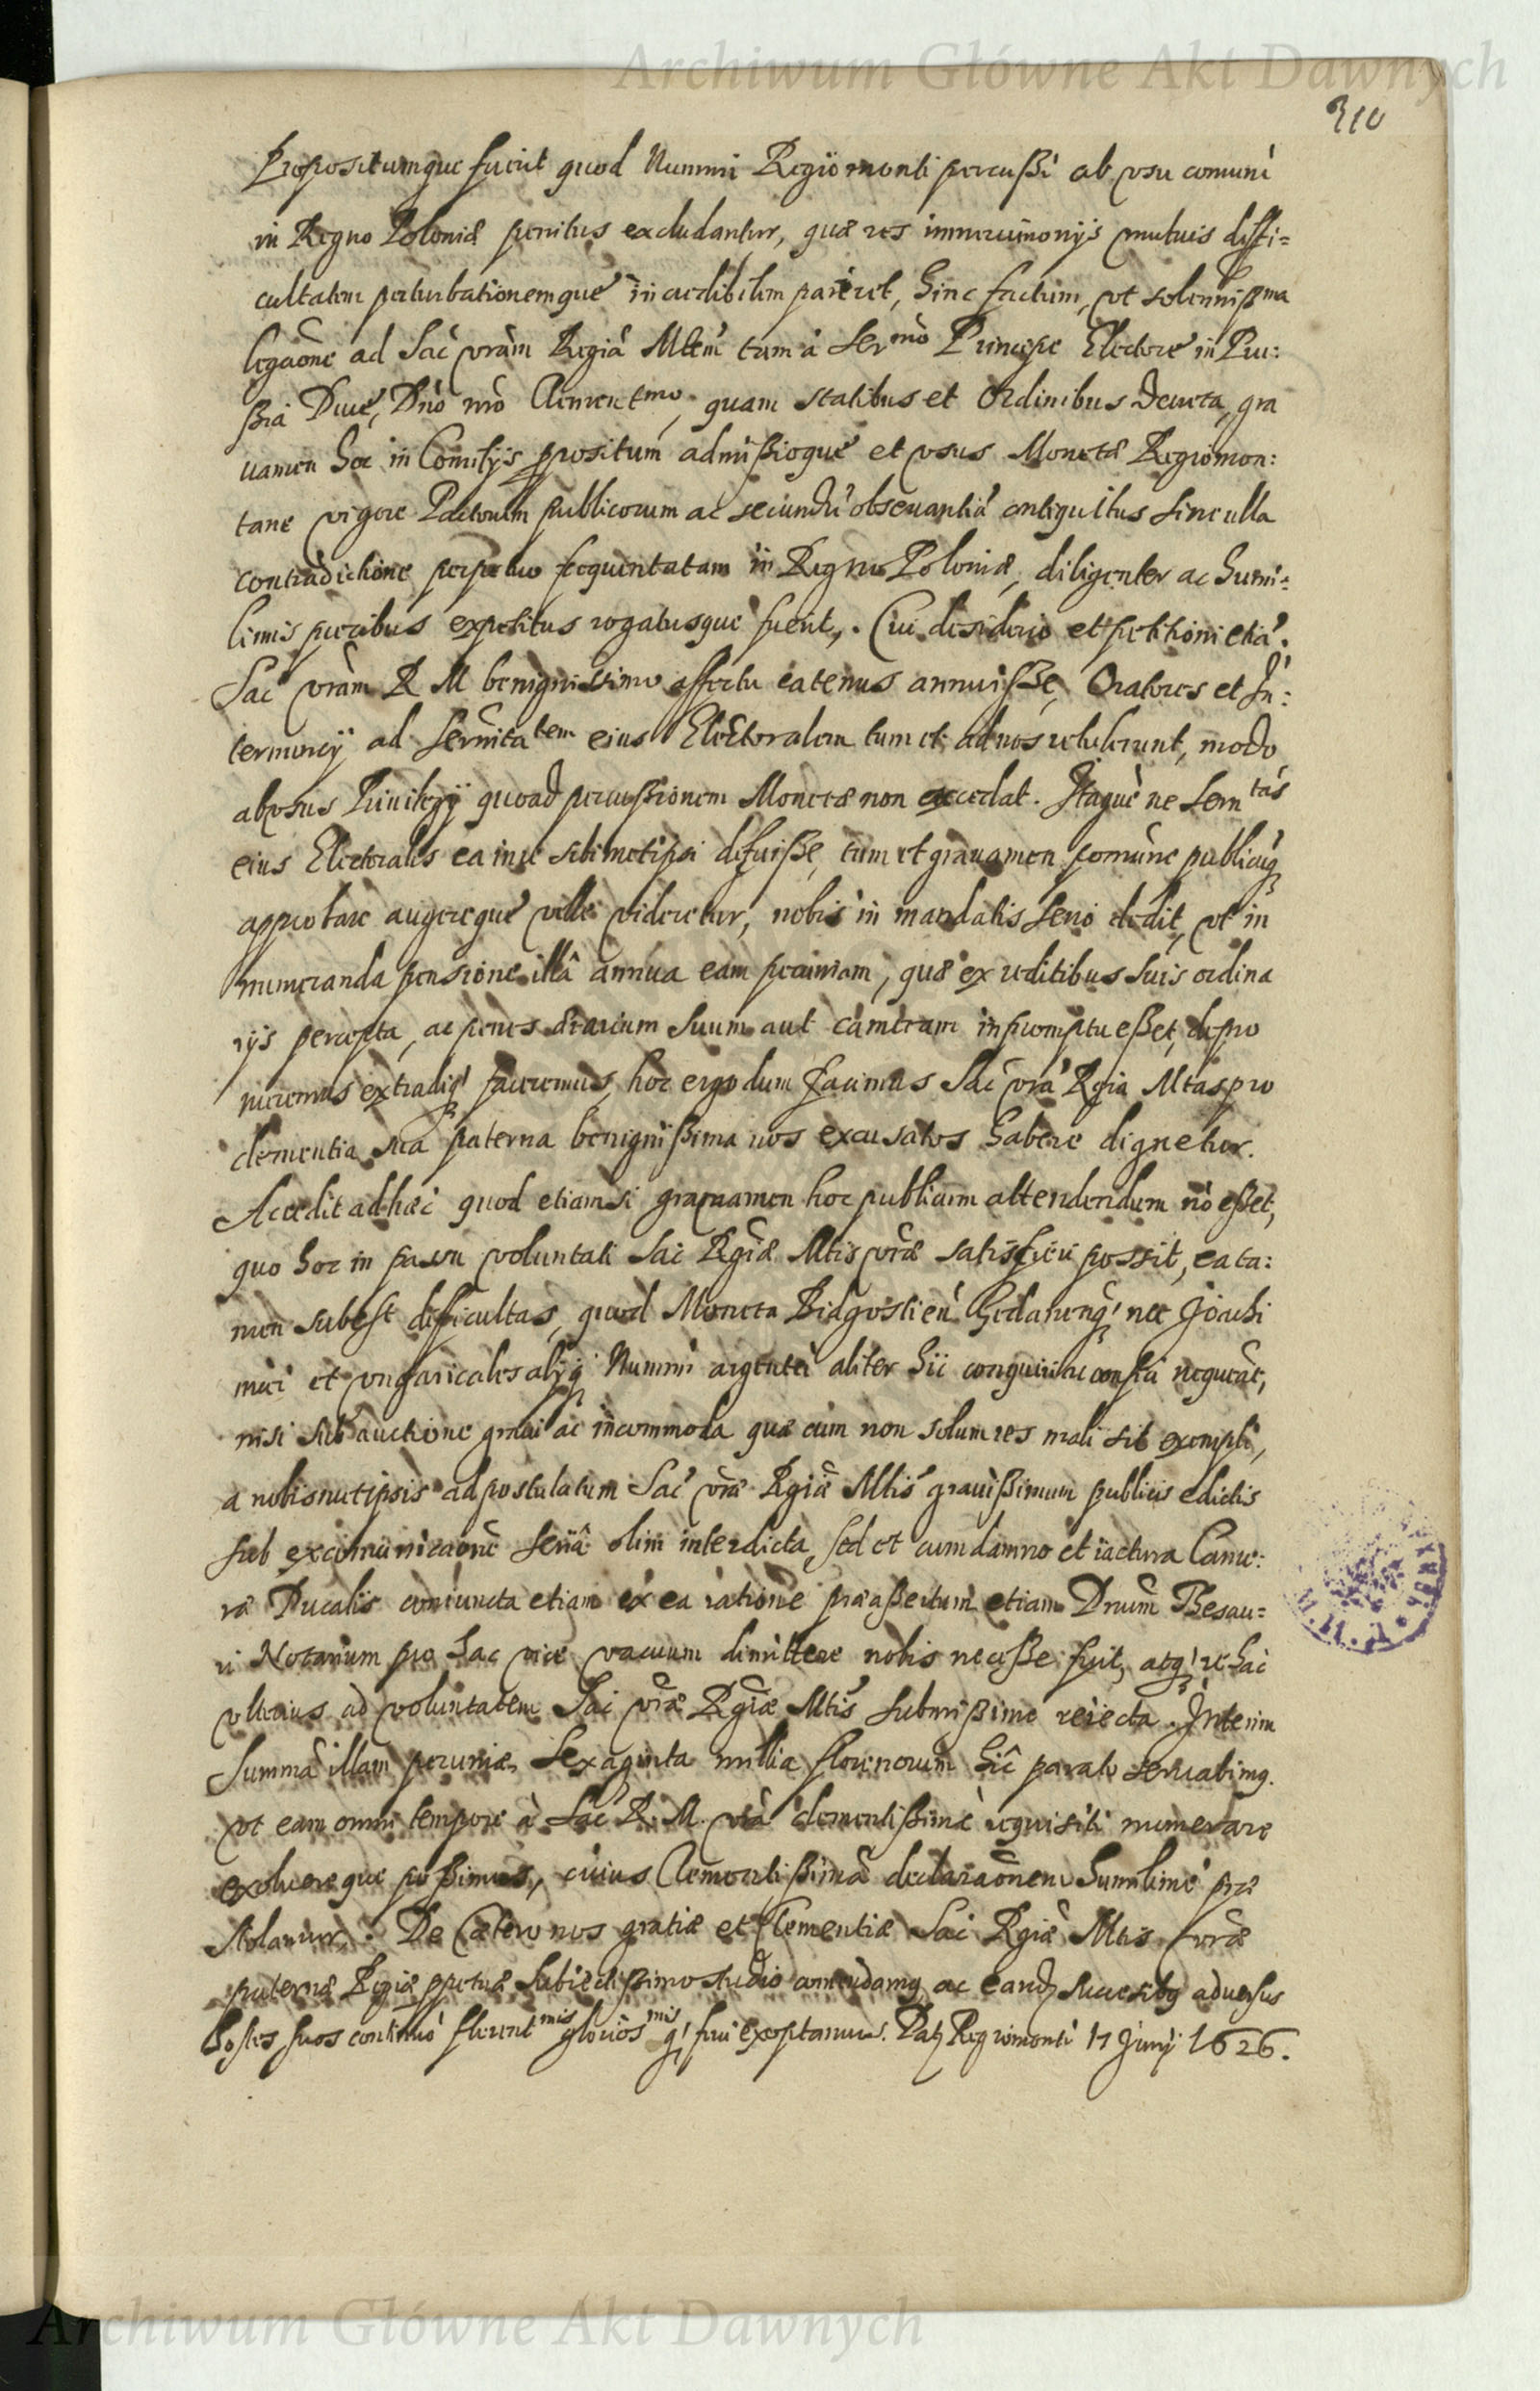 Archiwum Główne Akt Dawnych
310
Propositumque fuerit quod Nummi Regiomonti percußi ab vsu comuni
in Regno Poloniæ penitus excludantur, quæ res immerimonijs mutuis diffi=
cultatem perturbationemque incredibilem pareret, hinc factum, vt solennißma
legaōne ad Sac vram Regiā Mtem tam à Sermo Principe Electore in Pru:
ßia Duce, Dno nro Clementmo, quam statibus et Ordinibus decreta, gra
uamen hoc in Comitijs ppositum admißioque et vsus Monetæ Regiomon:
tane vigore Pactorum publicorum ac secundū obseruantiā antiquitus sine ulla
contradictione perpetuo frequentatam in Regno Poloniæ, diligenter ac humi=
limis precibus expetitus rogatusque fuerit,. Cui desiderio et petitioni etiā.
Sac vram R M benignissimo affectu eatenus annuiße, Oratores et In:
ternuncij ad Sernitatem eius Electoralem tum et ad nos retulerunt, modo
abvsus Priuilegij quoad percußionem Monetæ non excedat. Itaque ne Serntas
eius Electoralis ea in re sibimetipsi defuiße, tum et grauamen comune publicuq
approbare augereque velle videretur, nobis in mandatis serio dedit, vt in
numeranda pensione illâ annua eam pecuniam, quæ ex reditibus suis ordina
rijs percepta, ac penes ærarium suum aut cameram in promptu eßet, depro
meremus extradiq faceremus, hoc ergo dum facimus Sac vra Rgia Mtas pro
clementia sua paterna benignißima nos excusatos habere dignetur.
Accedit ad hæc quod etiamsi grauamen hoc publicum attendendum nō eßet,
quo hoc in passu voluntati Sac Rgiæ Mtis vræ satisfieri possit, ea ta:
men subest difficultas, quod Moneta Bidgostien Gedanenq nec Joachi
mici et vngaricales alijq Nummi argentei aliter hic conquiri ac confici nequeāt,
nisi sub auctione graui ac incommoda quæ cum non solum res mali sit exempli,
a nobismetipsis ad postulatum Sac vræ Rgiæ Mtis grauißimum publicis edictis
sub excomunicaōne seriâ olim interdicta, sed et cum damno et iactura Came:
ræ Ducalis coniuncta etiam ex ea ratione præaßertum etiam Dnum Thesau=
ri Notarium pro hac vice vacuum dimittere nobis neceße fuit, atq re hac
vlterius ad voluntatem Sac vræ Rgiæ Mtis submißime reiecta. Interim
Summā illam pecuniæ, Sexaginta millia florenorum hîc parato seruabimq.
vt eam omni tempore à Sac R. M. vra clementißime requisiti numerare
exoluereque poßimus, cuius Clementißimā declaraōnem humilime præ
stolamur,. De Cætero nos gratiæ et Clementiæ Sac Rgiæ Mtis vræ
paternæ Regiæ ppetuæ subiectißimo studio comendamq ac eandz successibq aduersus
hostes suos continuo florentmis gloriosmis q frui exoptamus. Datz Regiomonti 17 Junij 1626.
Archiwum Główne Akt Dawnych